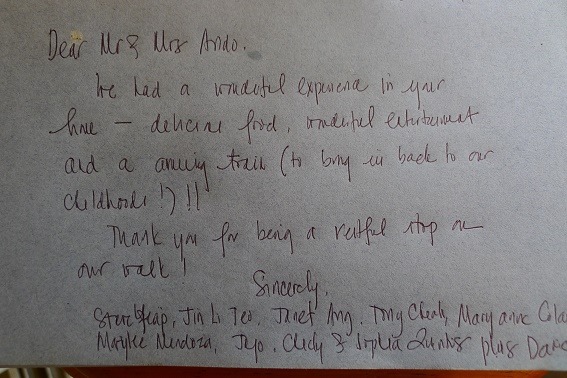 Dear Mr & Mrs Ando.
We had a wonderful experience in your
home — delicious food, wonderful entertainment
and a amazing train (to bring us back to our
childhoods!)!!
Thank you for being a restful stop on
our walk!
Sincerely,
Steve Yeap, Jin Li Teo, Janet Ang, Tony Cheah, Mary anne
Mendoza, Jojo, & Sophia plus